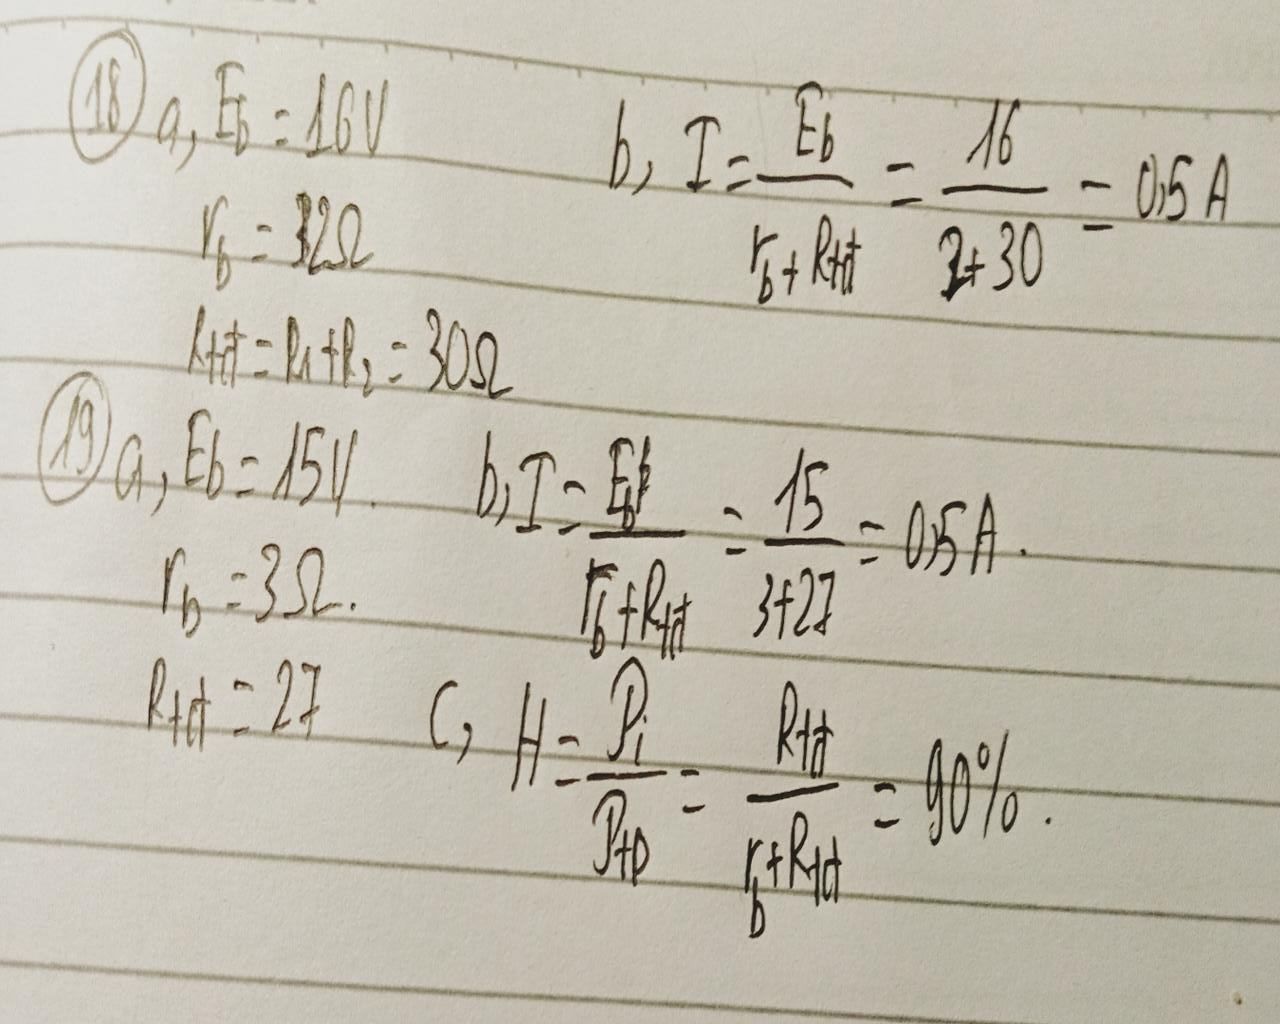 18 a, Eb = 16V
rb = 2Ω
Rtđ = R1 + R2 = 30Ω
b, I = Eb / (rb + Rtđ) = 16 / (2 + 30) = 0,5 A
19 a, Eb = 15V.
rb = 3Ω.
Rtđ = 27
b, I = Eb / (rb + Rtđ) = 15 / (3 + 27) = 0,5 A.
C, H = Pi / Ptp = Rtđ / (rb + Rtđ) = 90%.